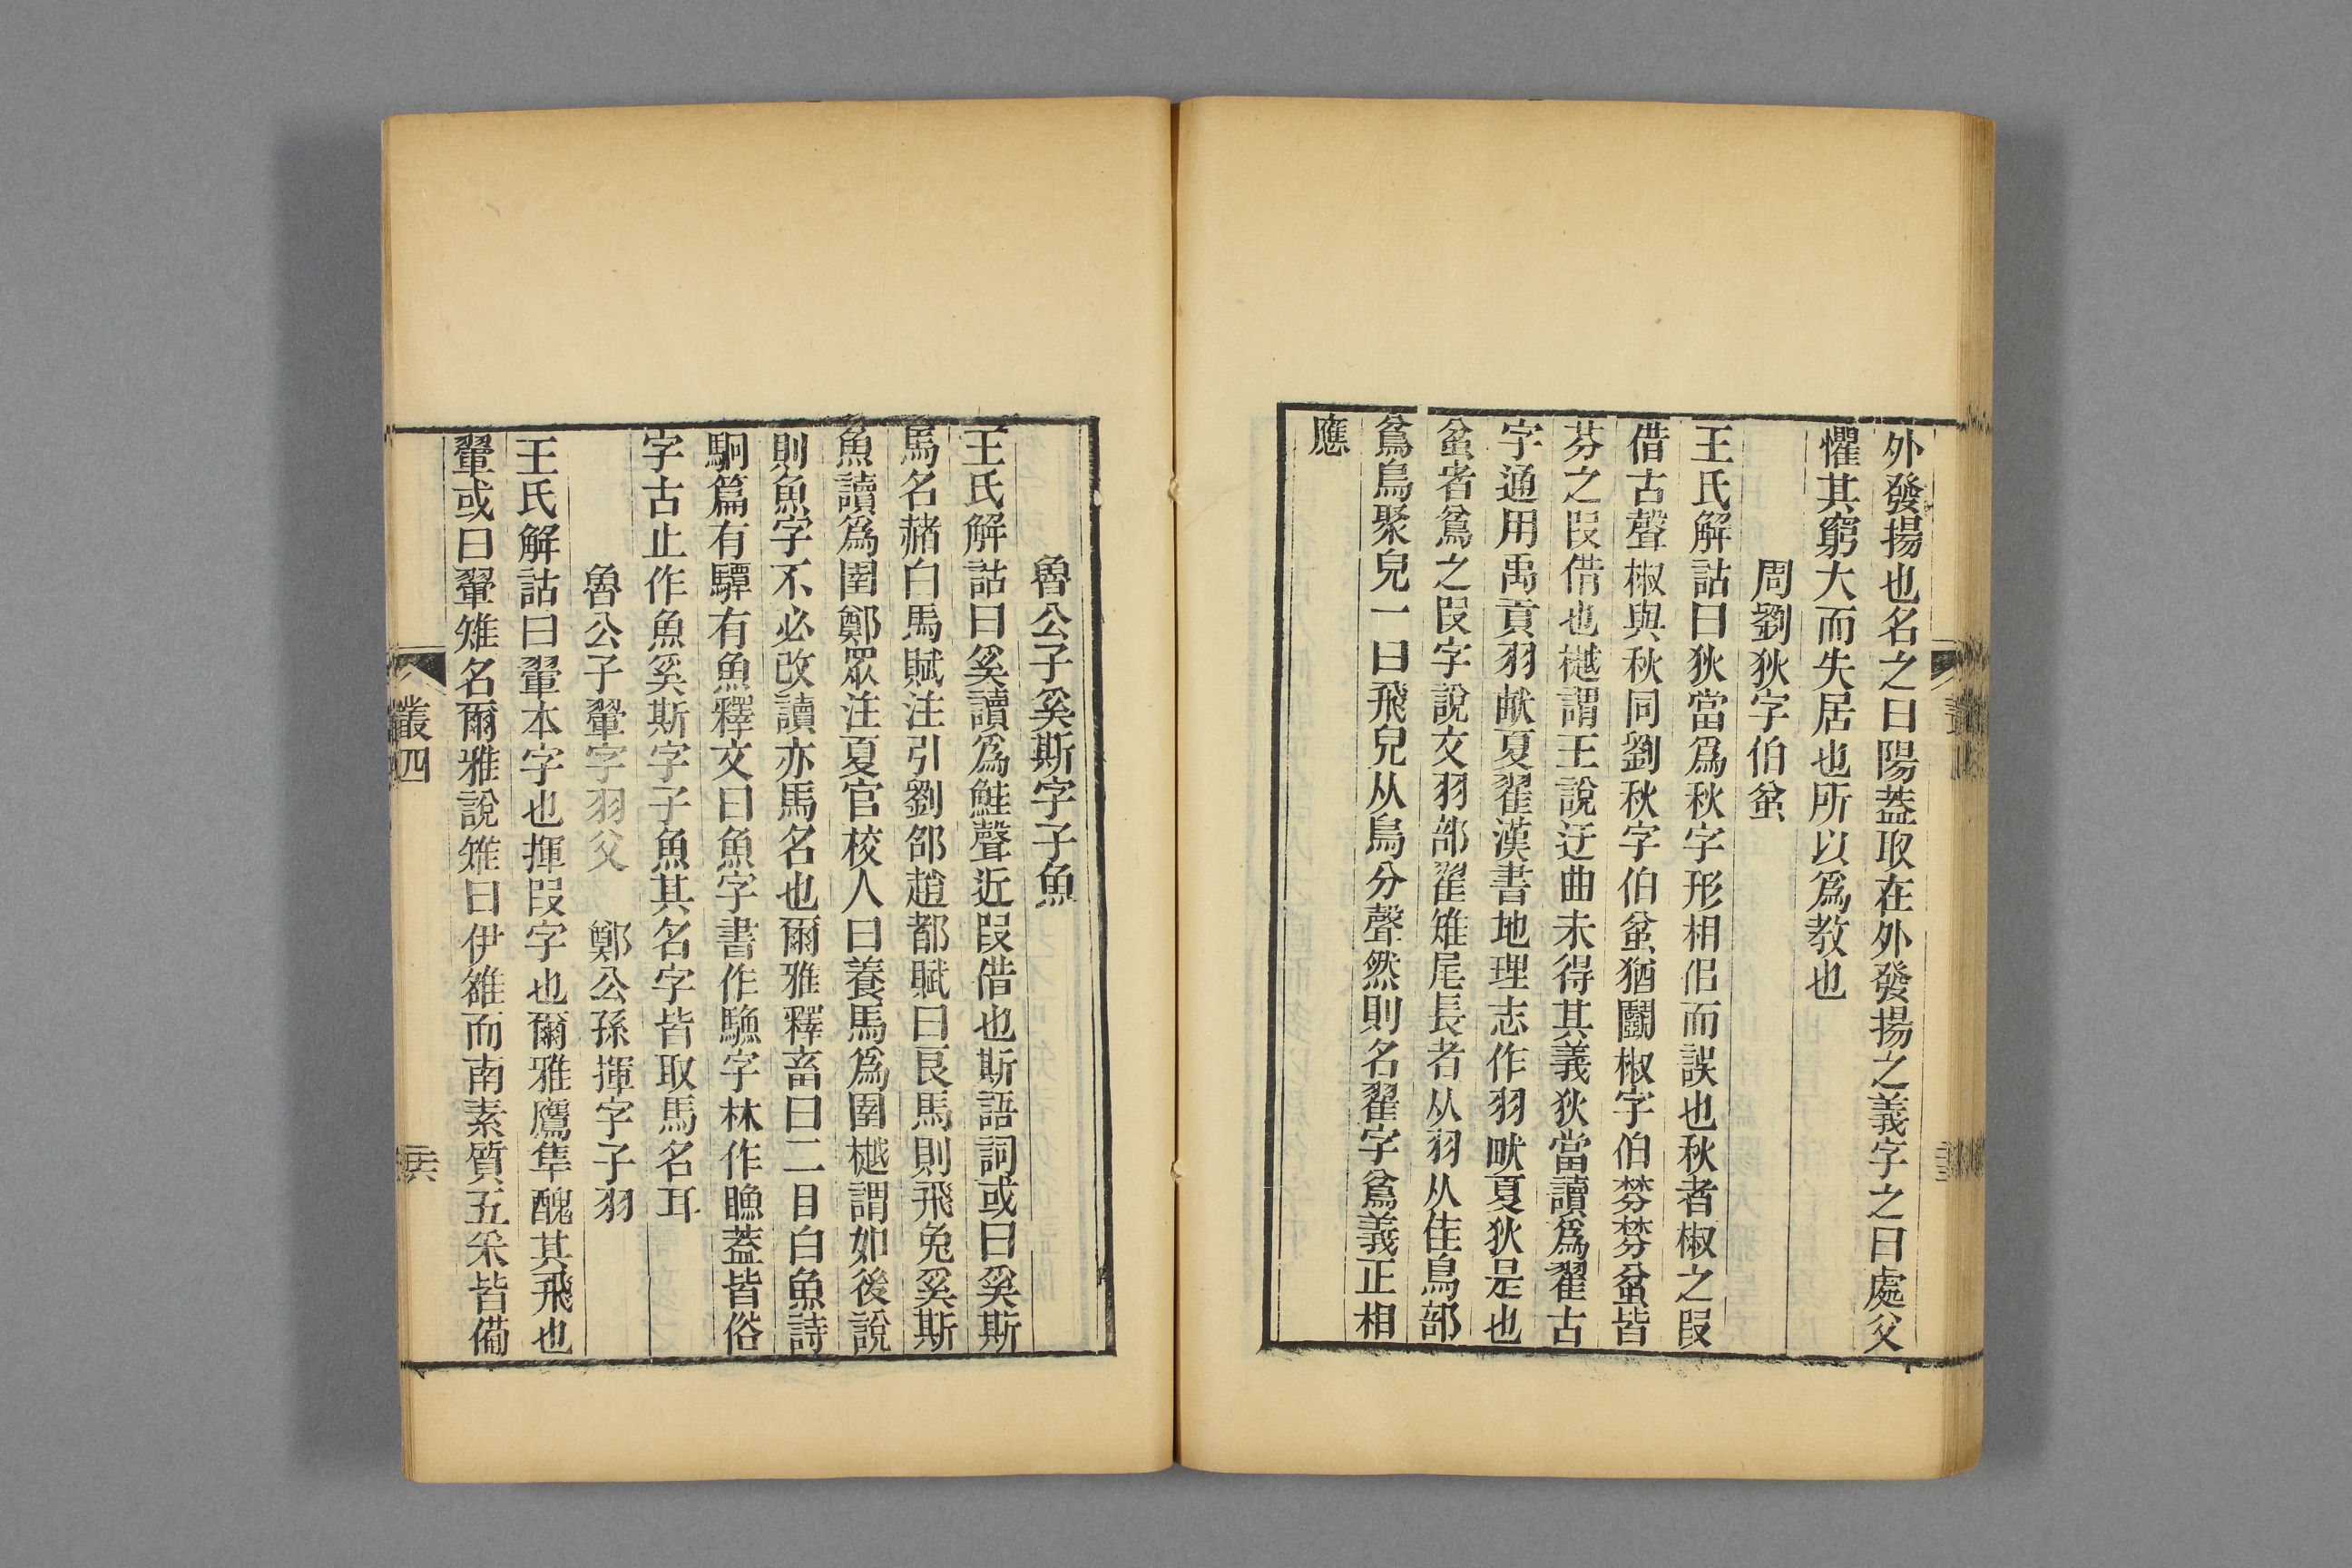 外發揚也名之曰陽蓋取在外發揚之義字之曰處父
懼其窮大而失居也所以爲教也
周劉狄字伯蚠
王氏解詁曰狄當爲秋字形相侣而誤也秋者椒之叚
借古聲椒與秋同劉秋字伯蚠猶鬭椒字伯棼棼蚠皆
芬之叚借也樾謂王說迂曲未得其義狄當讀爲翟古
字通用禹貢羽畎夏翟漢書地理志作羽畎夏狄是也
蚠者鳻之叚字說文羽部翟雉尾長者从羽从隹鳥部
鳻鳥聚皃一曰飛皃从鳥分聲然則名翟字鳻義正相
應
魯公子奚斯字子魚
王氏解詁曰奚讀爲鮭聲近叚借也斯語詞或曰奚斯
馬名赭白馬賦注引劉邵趙都賦曰良馬則飛兔奚斯
魚讀爲圉鄭眾注夏官校人曰養馬爲圉樾謂如後說
則魚字不必改讀亦馬名也爾雅釋畜曰二目白魚詩
駉篇有驔有魚釋文曰魚字書作䲣字林作䁩蓋皆俗
字古止作魚奚斯字子魚其名字皆取馬名耳
魯公子翬字羽父 鄭公孫揮字子羽
王氏解詁曰翬本字也揮叚字也爾雅鷹隼醜其飛也
翬或曰翬雉名爾雅說雉曰伊雒而南素質五采皆備
叢四